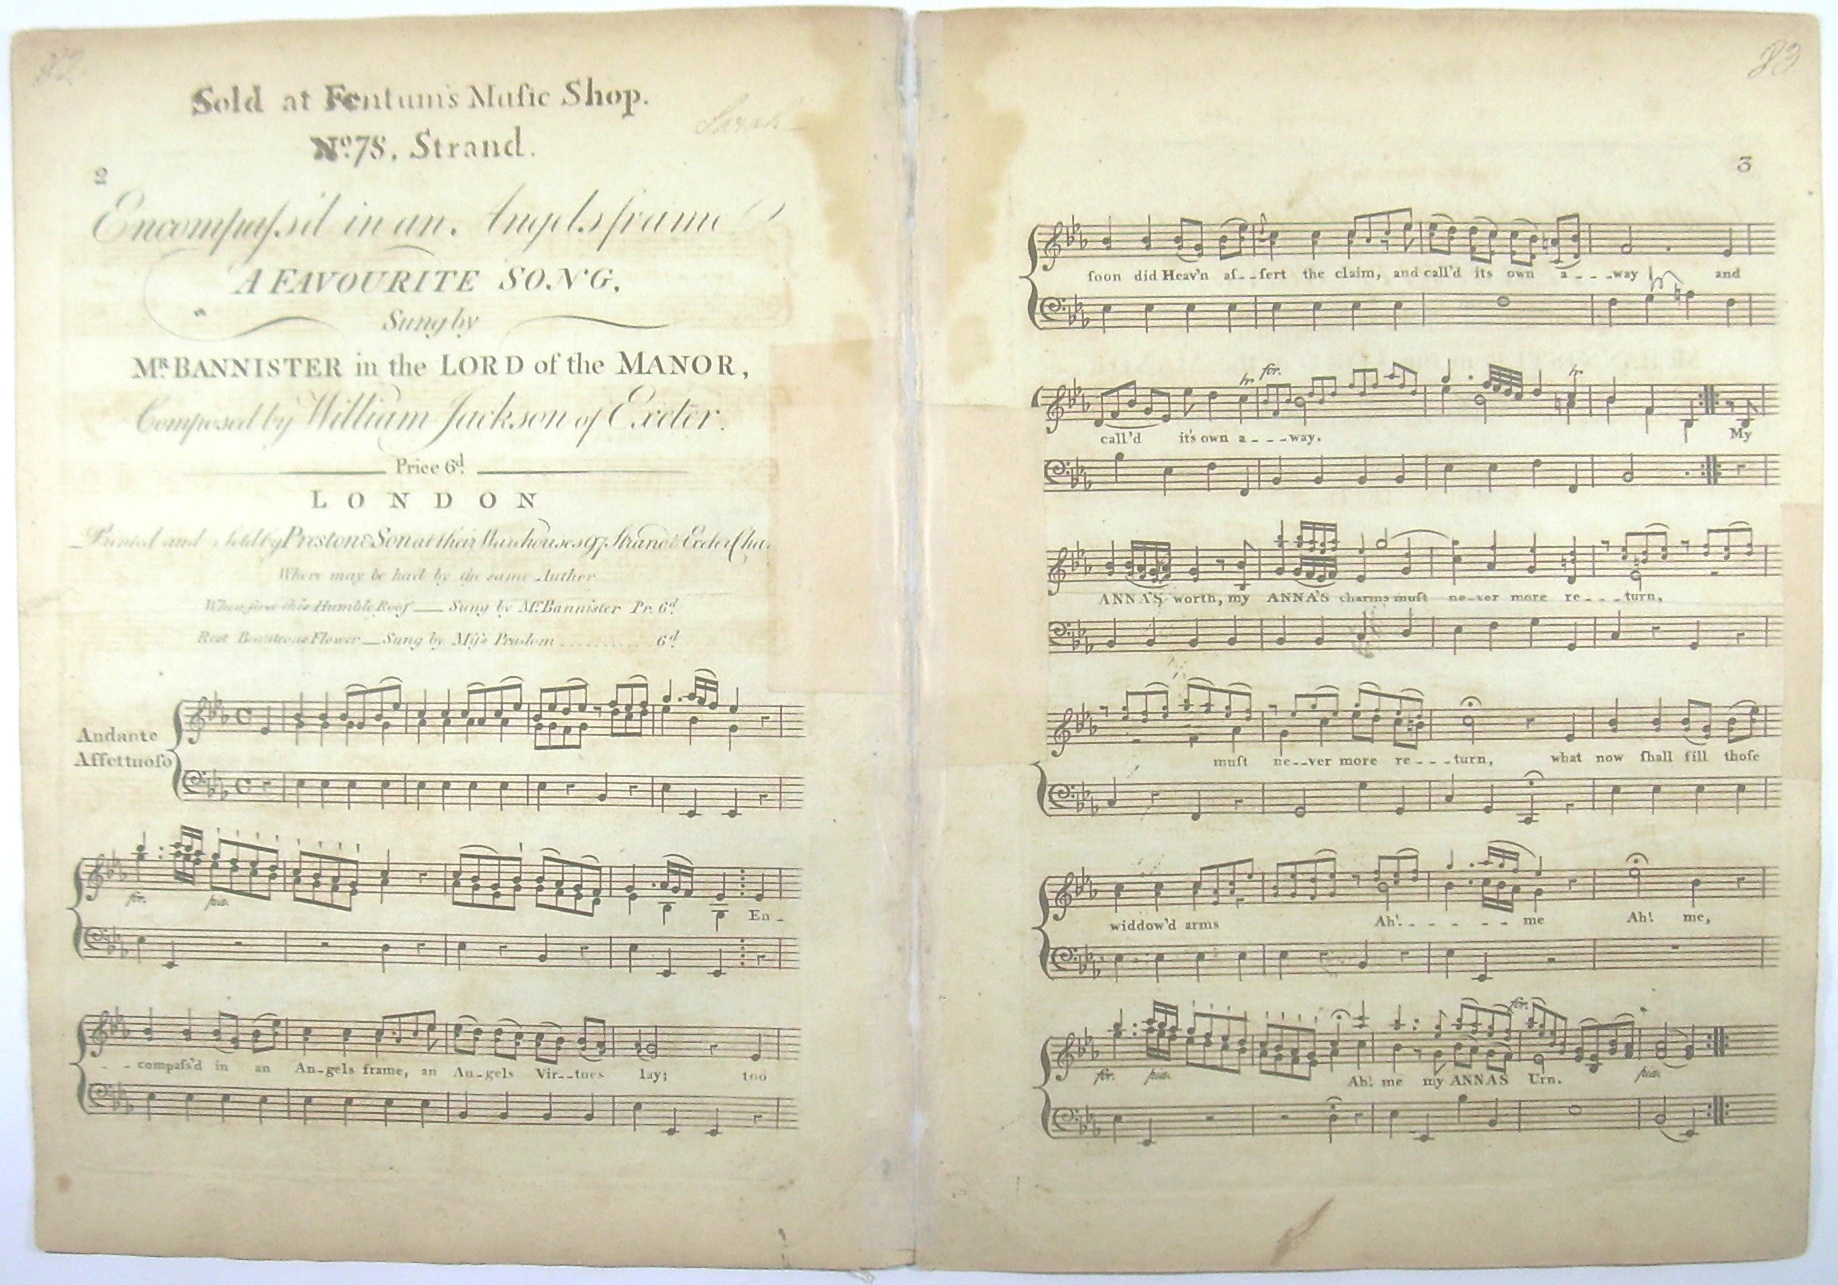 Sold at Fentum's Muſic Shop.
Nº. 78, Strand.
2
Encompaſs'd in an Angels frame
A FAVOURITE SONG,
Sung by
MR. BANNISTER in the LORD of the MANOR,
Composed by William Jackson of Exeter.
Price 6d.
LONDON
Printed and sold by Preston & Son at their Warehouses 97 Strand & Exeter Cha
Where may be had by the same Author
When first this Humble Roof — Sung by Mr. Bannister Pr. 6d.
Rest Beauteous Flower — Sung by Miſs Prudom ........... 6d.
Andante
Affettuoſo
for. pia. En-
-- compaſs'd in an An-gels frame, an An-gels Vir--tues lay; too
83
3
ſoon did Heav'n aſ--ſert the claim, and call'd its own a---way and
tr for. tr
call'd it's own a----way. My
ANNA'S worth, my ANNA'S charms muſt ne-ver more re----turn,
muſt ne--ver more re---turn, what now ſhall fill thoſe
widdow'd arms Ah!------me Ah! me,
for.
for. pia. Ah! me my ANNAS Urn. pia.